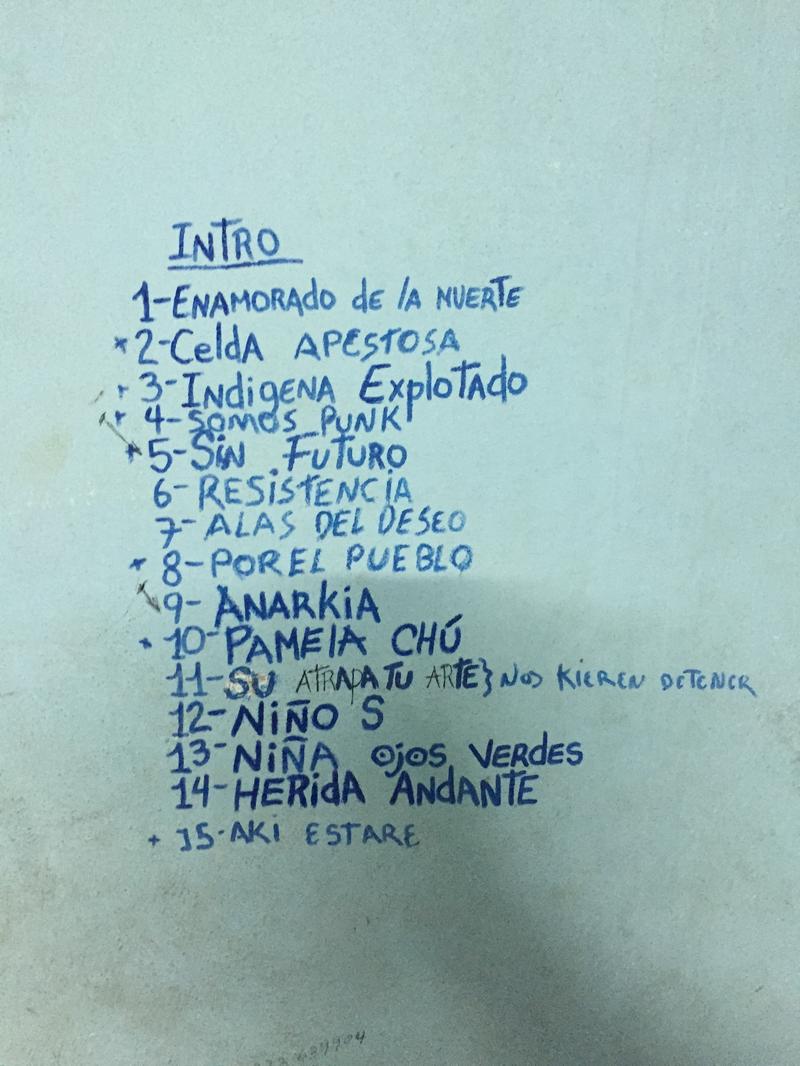 INTRO
1-ENAMORAdO de lA MUERTE
* 2-CeldA APESTOSA
3-INdigENA ExploTAdo
4-SOMOS PUNK
5-SiN FUTURO
6-RESiSTENCiA
7-ALAS DEL DESEO
* 8-POR EL PUEBLO
9-ANARKiA
10-PAMElA CHÚ
11-SU ATRAPA TU ARTE} NOS KIEREN DETENER
12-NiÑO S
13-NiÑA OjOS VERdES
14-HERidA ANdANTE
+ 15-AKI ESTARE